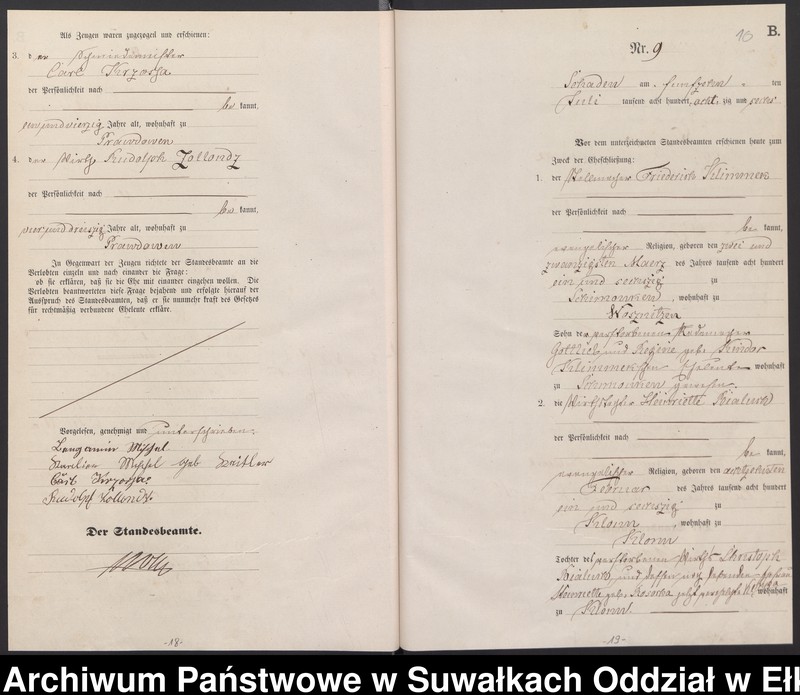 Als Zeugen waren zugezogen und erschienen:
3. der Schmiedemeister
Carl Krzossa
der Persönlichkeit nach
be kannt,
ein und vierzig Jahre alt, wohnhaft zu
Prawdowen
4. der Wirth Rudolph Zollondz
der Persönlichkeit nach
be kannt,
vier und dreizig Jahre alt, wohnhaft zu
Prawdowen
In Gegenwart der Zeugen richtete der Standesbeamte an die
Verlobten einzeln und nach einander die Frage:
ob sie erklären, daß sie die Ehe mit einander eingehen wollen. Die
Verlobten beantworteten diese Frage bejahend und erfolgte hierauf der
Ausspruch des Standesbeamten, daß er sie nunmehr kraft des Gesetzes
für rechtmäßig verbundene Eheleute erkläre.
Vorgelesen, genehmigt und unterschrieben:
Benjamin
geb
Carl Krzossa
Rudolf Zollondz
Der Standesbeamte.
-18-
10 B.
Nr. 9
Schaden am fünfzehn ten
Juli tausend acht hundert acht zig und sechs
Vor dem unterzeichneten Standesbeamten erschienen heute zum
Zweck der Eheschließung:
1. der Stellmacher Friederich Klimmek
der Persönlichkeit nach
be kannt,
evangelischer Religion, geboren den zwei und
zwanzigsten Maerz des Jahres tausend acht hundert
ein und sechszig zu
Schimonken, wohnhaft zu
Wosnitzen
Sohn der verstorbenen Rademacher
Gottlieb und Regine geb.
Klimmekschen Eheleute wohnhaft
zu Schimonken gewesen.
2. die Wirthstochter Henriette Bialluch
der Persönlichkeit nach
be kannt,
evangelischer Religion, geboren den achtzehnten
Februar des Jahres tausend acht hundert
ein und sechszig zu
Klonn, wohnhaft zu
Klonn
Tochter des verstorbenen Wirths Christoph
Bialluch und dessen noch lebenden Ehefrau
Henriette geb. Kosorka jetzt wohnhaft
zu Klonn.
-19-
Archiwum Państwowe w Suwałkach Oddział w Eł